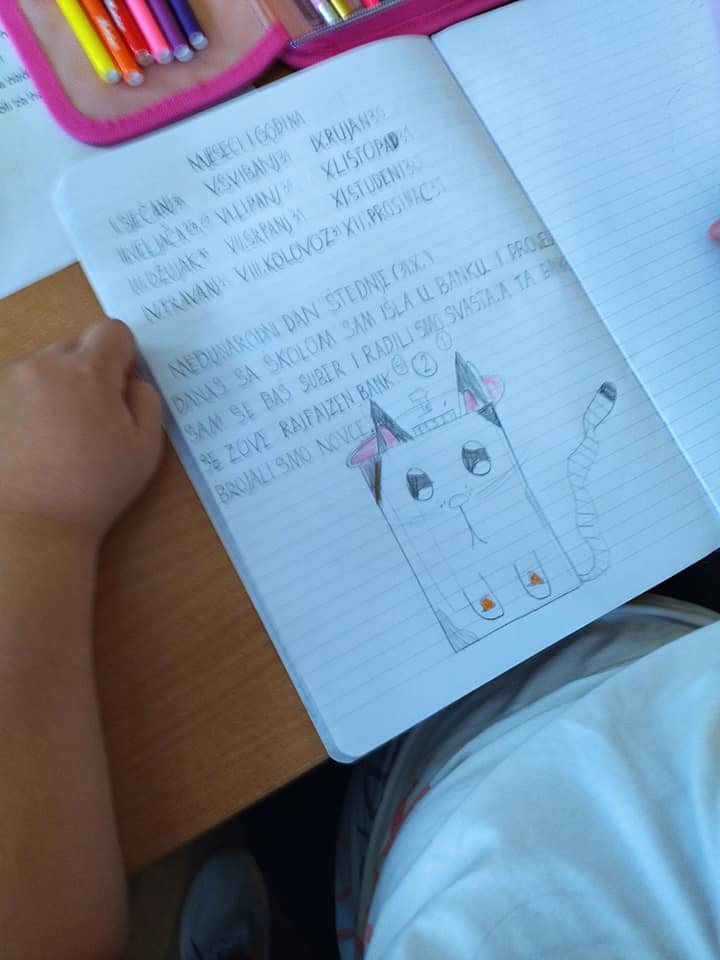 MJESECI I GODINA
I.SIJEČANJ31 V.SVIBANJ31 IX.RUJAN30
II.VELJAČA28 VI.LIPANJ30 X.LISTOPAD31
III.OŽUJAK31 VII.SRPANJ31 XI.STUDENI30
IV.TRAVANJ30 VIII.KOLOVOZ31 XII.PROSINAC31
MEĐUNARODNI DAN ŠTEDNJE (31.X.)
DANAS SA ŠKOLOM SAM IŠLA U BANKU I PROVELA
SAM SE BAŠ SUBER I RADILI SMO SVAŠTA,A TA BANKA
SE ZOVE RAJFAJZEN BANK.
BROJALI SMO NOVCE.
2 1